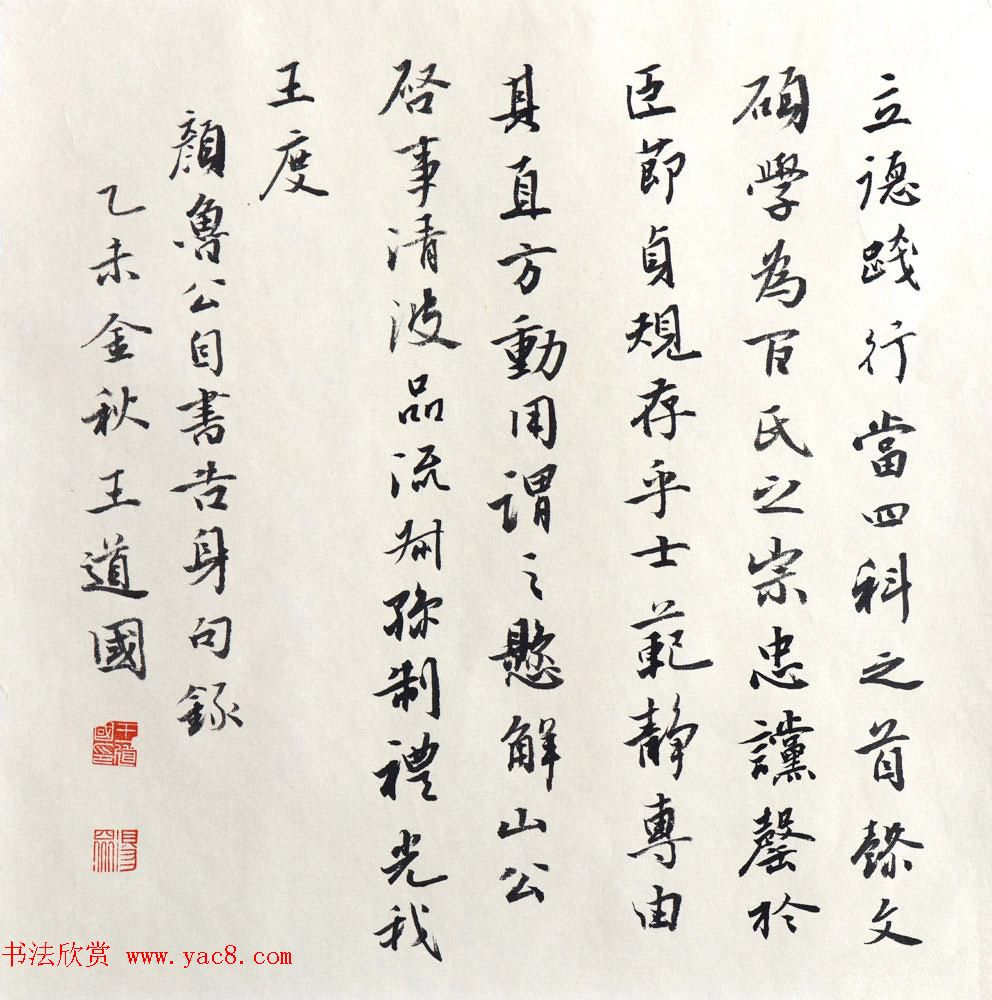 立德踐行當四科之首懿文
碩學為百氏之宗忠讜罄於
臣節貞規存乎士範靜專由
其直方動用謂之懸解山公
啓事清彼品流叔孫制禮光我
王度
顏魯公自書告身句錄
乙未金秋王道國
王道國印
书法欣赏 www.yac8.com